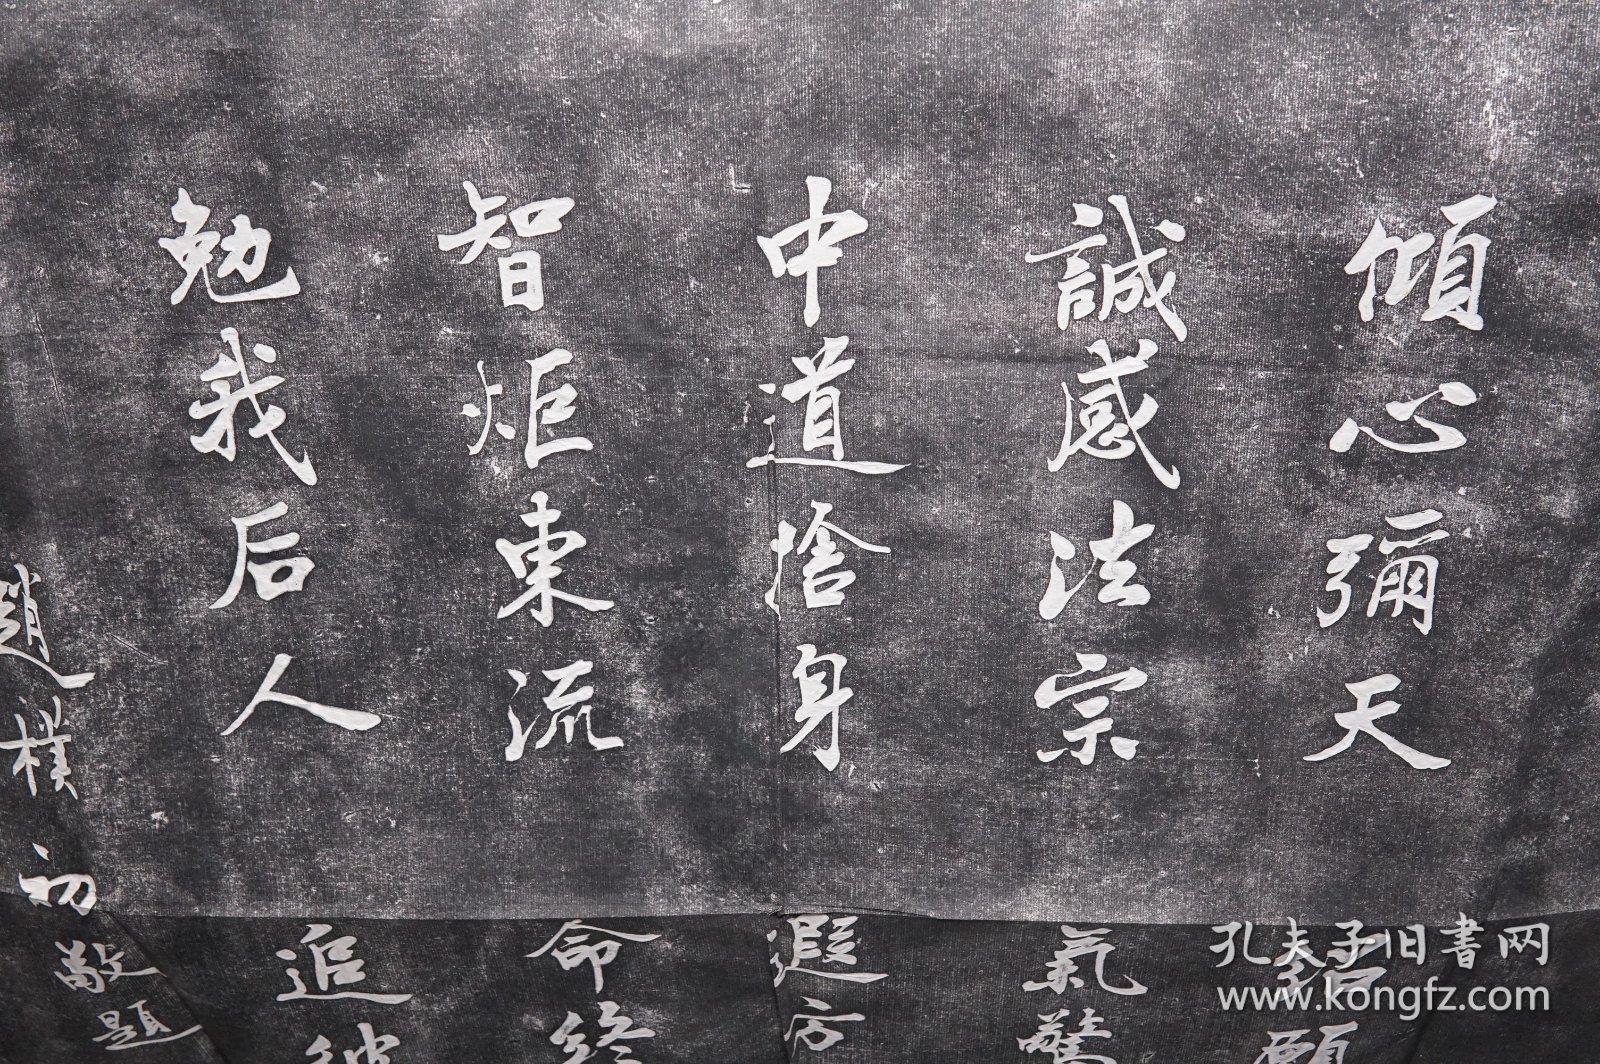 傾心彌天
誠感法宗
中道捨身
智炬東流
勉我后人
趙樸初敬題
弘願
氣驚
遐方
命終
追彼
孔夫子旧書网
www.kongfz.com